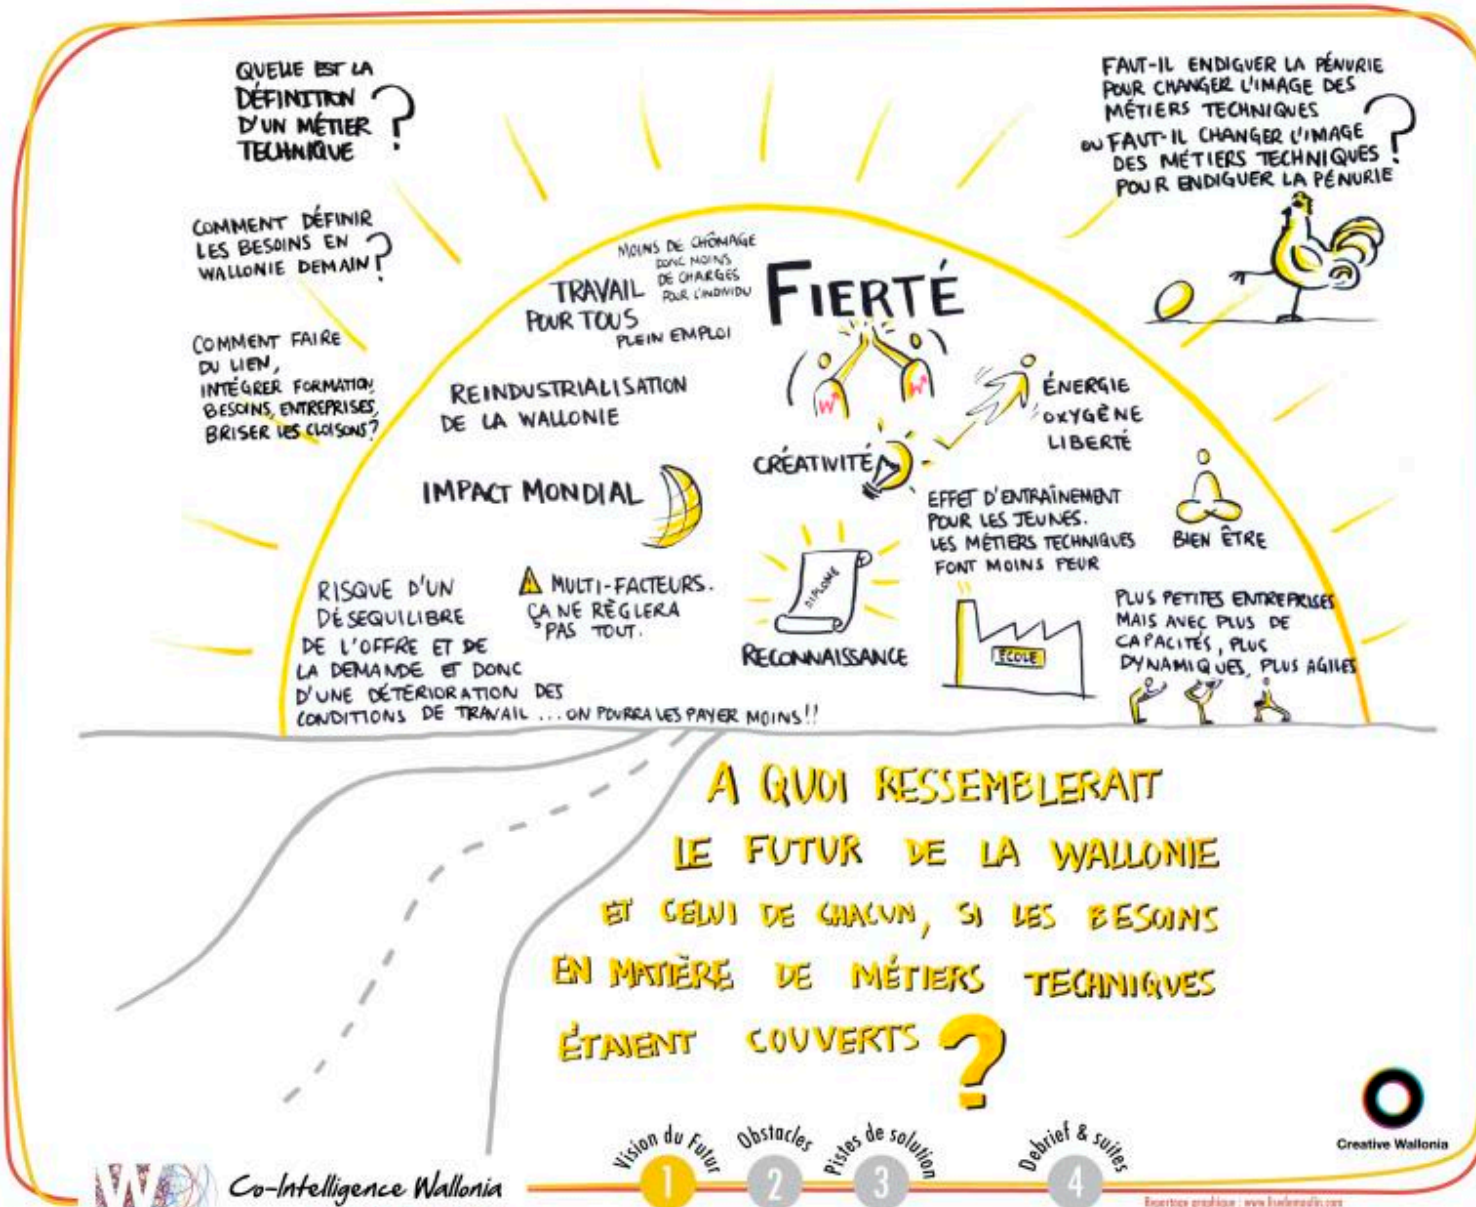 QUELLE EST LA
DÉFINITION
D'UN MÉTIER
TECHNIQUE ?
COMMENT DÉFINIR
LES BESOINS EN
WALLONIE DEMAIN ?
COMMENT FAIRE
DU LIEN,
INTÉGRER FORMATION,
BESOINS, ENTREPRISES,
BRISER LES CLOISONS?
FAUT-IL ENDIGUER LA PÉNURIE
POUR CHANGER L'IMAGE DES
MÉTIERS TECHNIQUES
OU FAUT-IL CHANGER L'IMAGE
DES MÉTIERS TECHNIQUES ?
POUR ENDIGUER LA PÉNURIE
MOINS DE CHÔMAGE
DONC MOINS
DE CHARGES
POUR L'INDIVIDU
TRAVAIL
POUR TOUS
PLEIN EMPLOI
FIERTÉ
W
W
REINDUSTRIALISATION
DE LA WALLONIE
ÉNERGIE
OXYGÈNE
LIBERTÉ
CRÉATIVITÉ
IMPACT MONDIAL
EFFET D'ENTRAÎNEMENT
POUR LES JEUNES.
LES MÉTIERS TECHNIQUES
FONT MOINS PEUR
BIEN ÊTRE
RISQUE D'UN
DÉSEQUILIBRE
DE L'OFFRE ET DE
LA DEMANDE ET DONC
D'UNE DÉTÉRIORATION DES
CONDITIONS DE TRAVAIL ... ON POURRA LES PAYER MOINS!!
MULTI-FACTEURS.
ÇA NE RÈGLERA
PAS TOUT.
DIPLOME
RECONNAISSANCE
ECOLE
PLUS PETITES ENTREPRISES
MAIS AVEC PLUS DE
CAPACITÉS, PLUS
DYNAMIQUES, PLUS AGILES
A QUOI RESSEMBLERAIT
LE FUTUR DE LA WALLONIE
ET CELUI DE CHACUN, SI LES BESOINS
EN MATIÈRE DE MÉTIERS TECHNIQUES
ÉTAIENT COUVERTS ?
Creative Wallonia
W
Co-Intelligence Wallonia
Vision du Futur
1
Obstacles
2
Pistes de solution
3
Debrief & suites
4